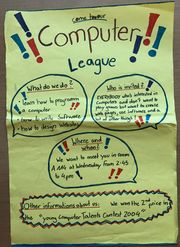 come to our
Computer
League
What do we do?
learn how to programm
a computer
how to use Software
how to design websites
Who is invited?
EVERYBODY who's interested in
computers and don't want to
play games, but want to create
web pages, use Software and a
lot of other things
Where and
when?
We want to meet you in room
A 206 at Wednesday from 2:45
to 4 pm
Other informations about us: We won the 2nd price in
the "young Computer Talents Contest 2004"